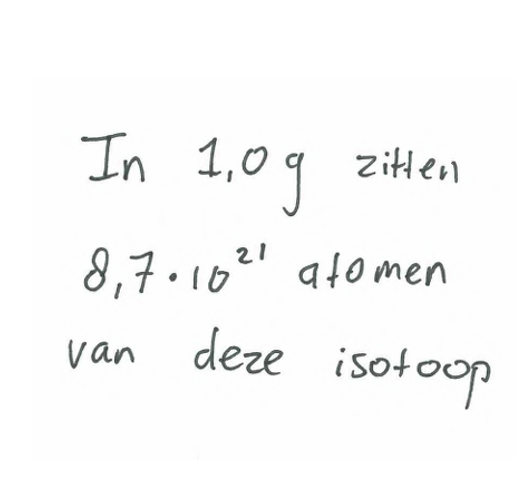 In 1,0 g zitten
8,7 · 10²¹ atomen
van deze isotoop